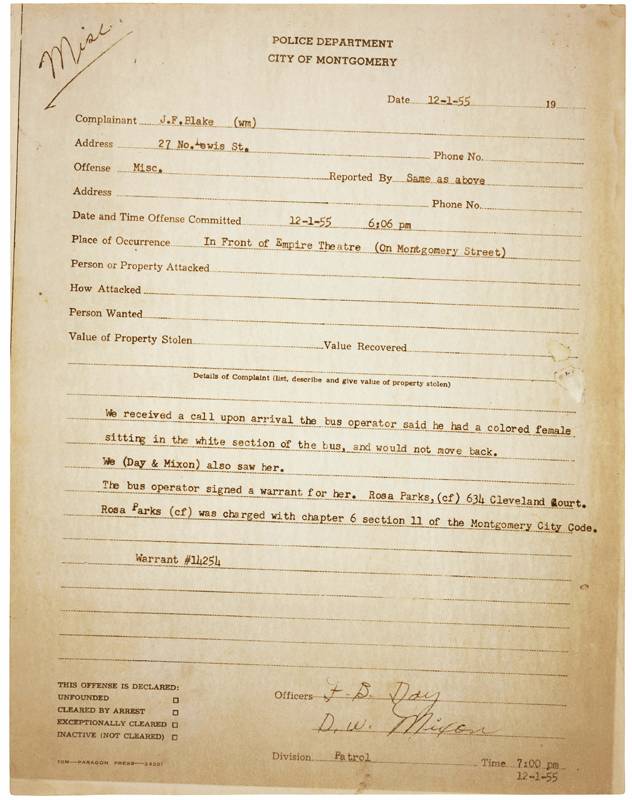 Misc.
POLICE DEPARTMENT
CITY OF MONTGOMERY
Date 12-1-55 19
Complainant J.F.Blake (wm)
Address 27 No.Lewis St.
Phone No.
Offense Misc. Reported By Same as above
Address Phone No.
Date and Time Offense Committed 12-1-55 6:06 pm
Place of Occurrence In Front of Empire Theatre (On Montgomery Street)
Person or Property Attacked
How Attacked
Person Wanted
Value of Property Stolen Value Recovered
Details of Complaint (list, describe and give value of property stolen)
We received a call upon arrival the bus operator said he had a colored female
sitting in the white section of the bus, and would not move back.
We (Day & Mixon) also saw her.
The bus operator signed a warrant for her. Rosa Parks,(cf) 634 Cleveland Court.
Rosa Parks (cf) was charged with chapter 6 section 11 of the Montgomery City Code.
Warrant #14254
THIS OFFENSE IS DECLARED:
UNFOUNDED
CLEARED BY ARREST
EXCEPTIONALLY CLEARED
INACTIVE (NOT CLEARED)
Officers F. B. Day
D. W. Mixon
Division Patrol Time 7:00 pm
12-1-55
PARAGON PRESS